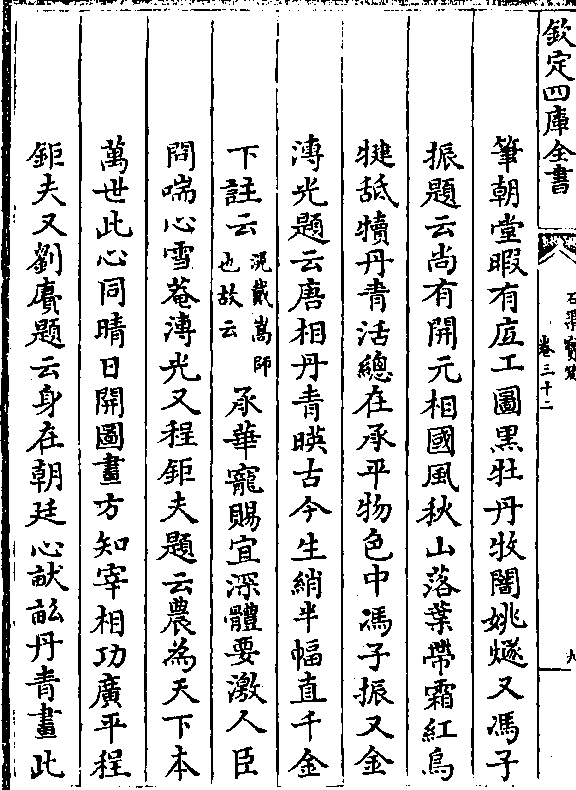 欽定四庫全書
石渠寶笈
卷三十二
筆朝堂暇有庀工圖黑牡丹牧闇姚燧又馮子
振題云尚有開元相國風秋山落葉帶霜紅烏
犍舐犢丹青活總在承平物色中馮子振又金
漙光題云唐相丹青暎古今生綃半幅直千金
下註云滉戴嵩師也故云承華寵賜宜深體要激人臣
問喘心雪菴漙光又程鉅夫題云農為天下本
萬世此心同晴日開圖畫方知宰相功廣平程
鉅夫又劉賡題云身在朝廷心畎畝丹青畫此